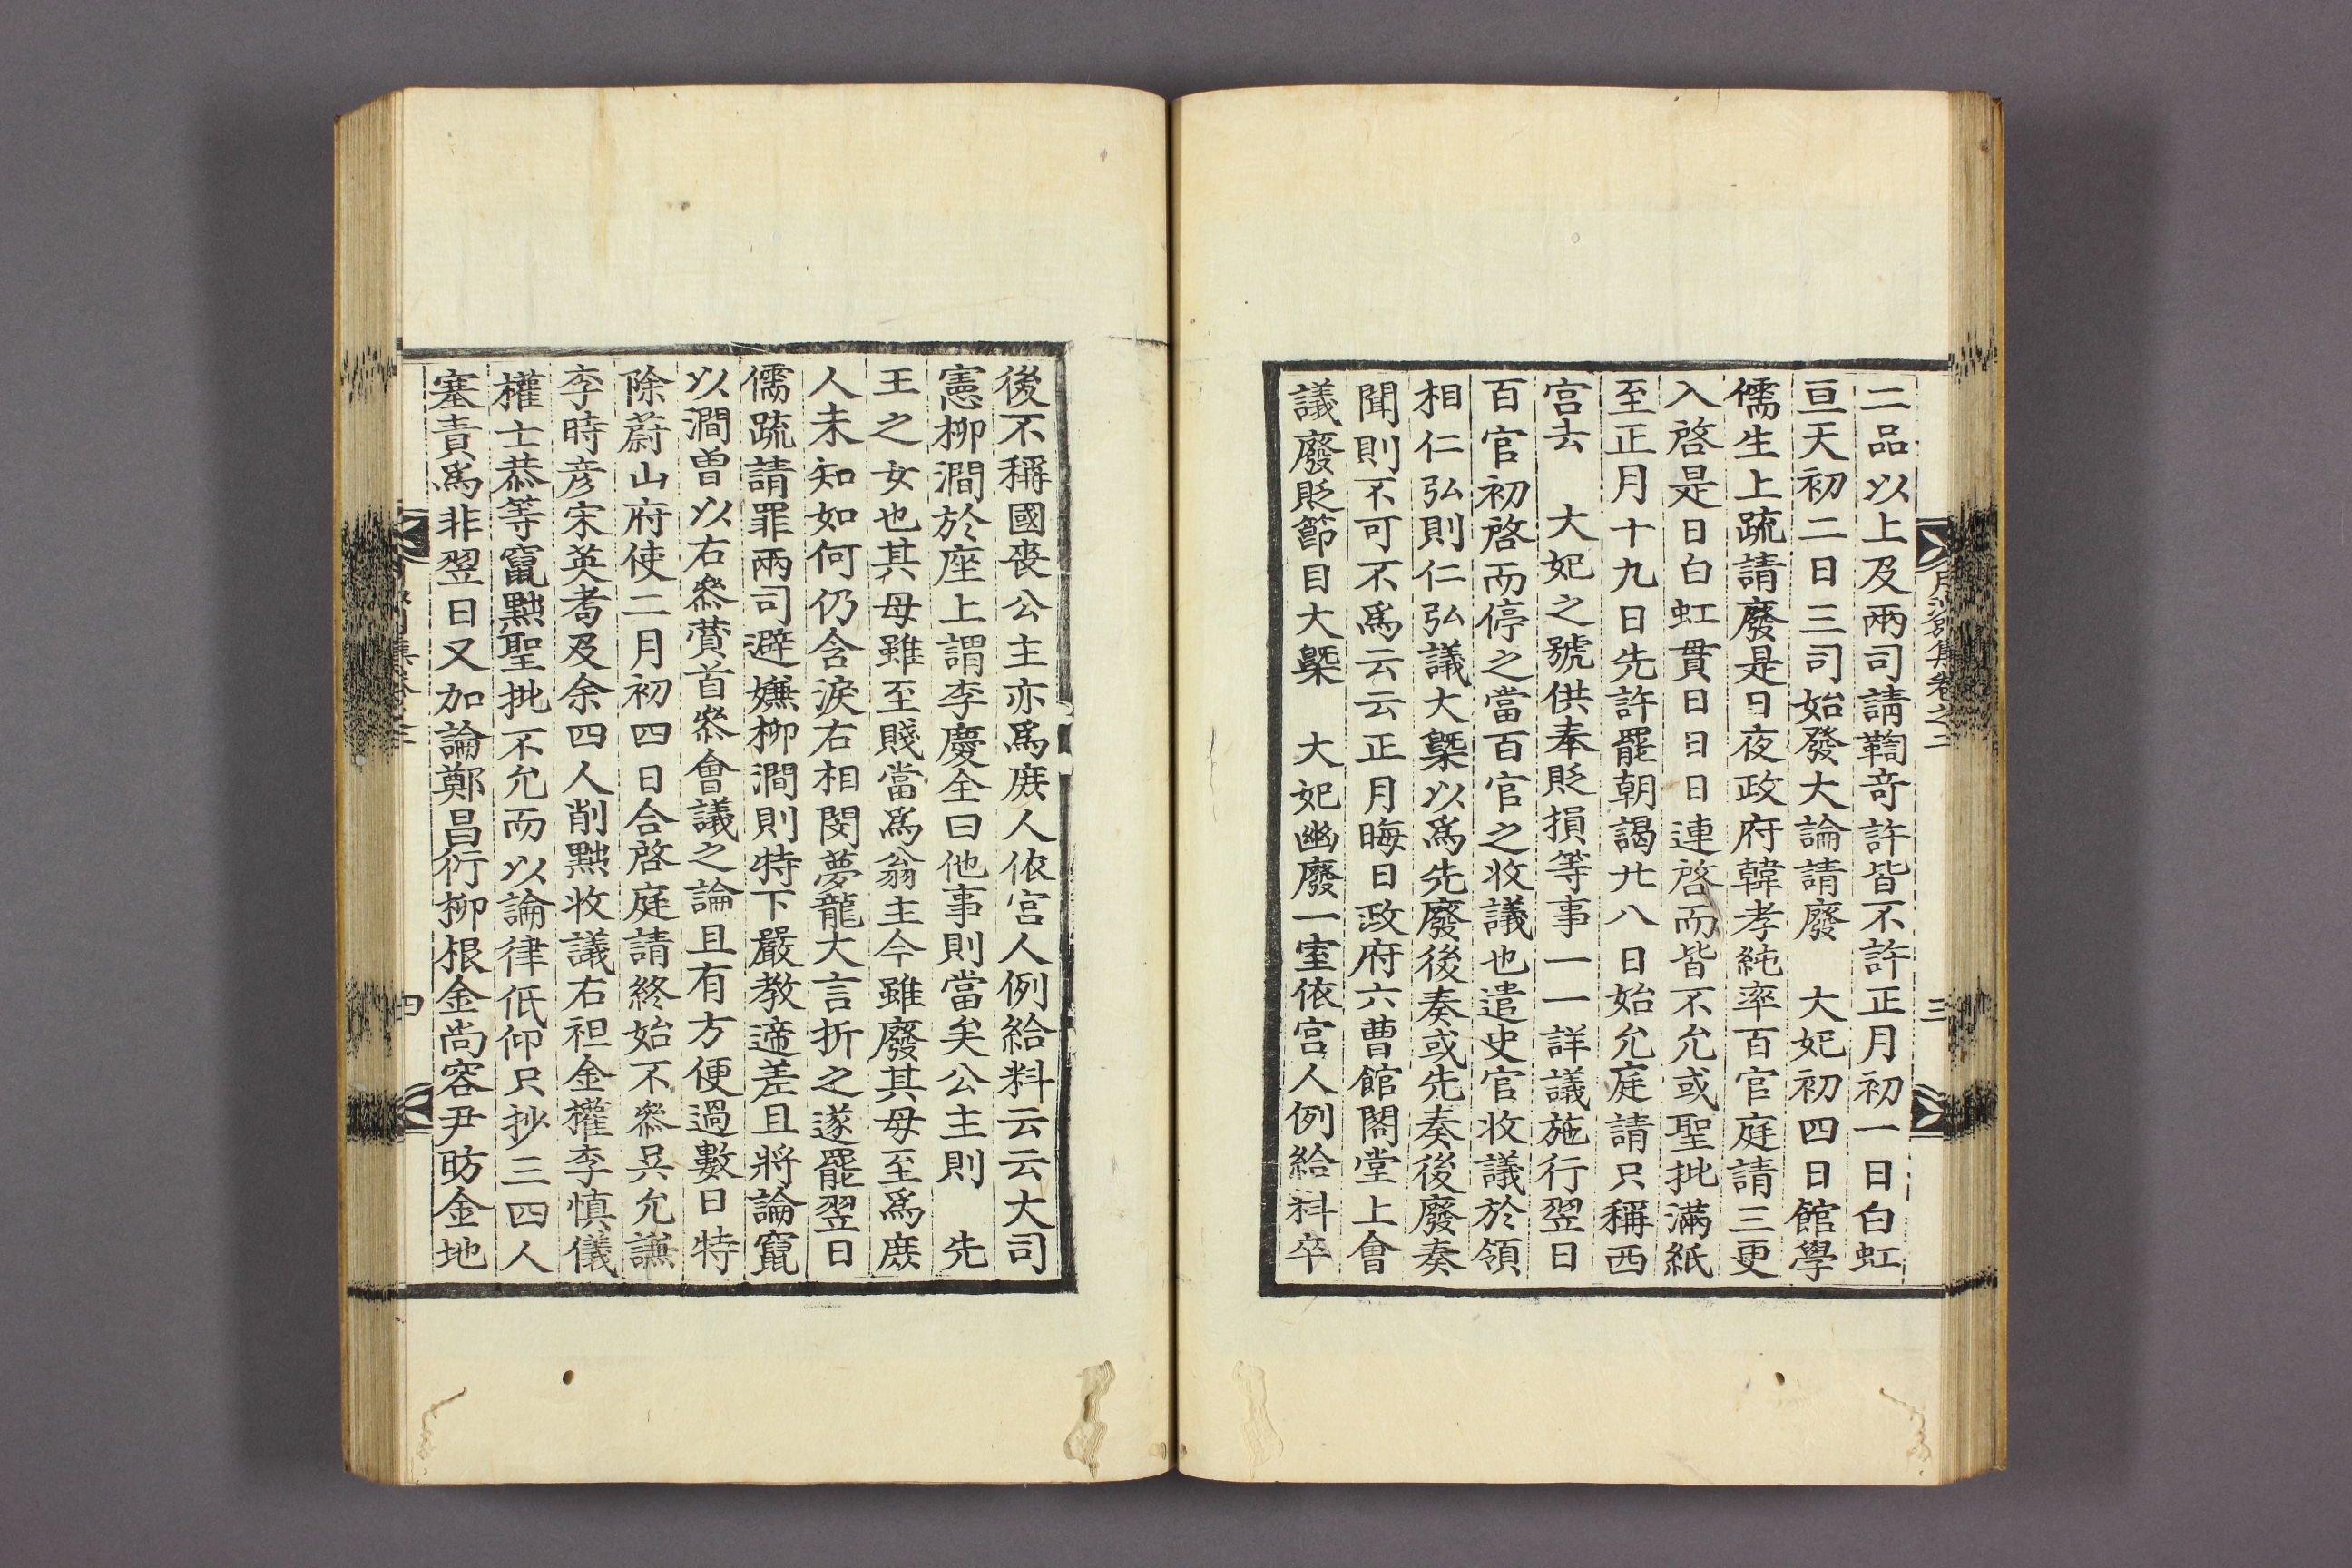 月沙別集卷之二
三
二品以上及兩司請鞫竒許皆不許正月初一日白虹
亘天初二日三司始發大論請廢　大妃初四日館學
儒生上疏請廢是日夜政府韓孝純率百官庭請三更
入啓是日白虹貫日日日連啓而皆不允或聖批滿紙
至正月十九日先許罷朝謁廿八日始允庭請只稱西
宮去　大妃之號供奉貶損等事一一詳議施行翌日
百官初啓而停之當百官之收議也遣史官收議於領
相仁弘則仁弘議大槩以爲先廢後奏或先奏後廢奏
聞則不可不爲云云正月晦日政府六曹館閣堂上會
議廢貶節目大槩　大妃幽廢一室依宮人例給料卒
後不稱國喪公主亦爲庶人依宮人例給料云云大司
憲柳澗於座上謂李慶全曰他事則當矣公主則　先
王之女也其母雖至賤當爲翁主今雖廢其母至爲庶
人未知如何仍含淚右相閔夢龍大言折之遂罷翌日
儒疏請罪兩司避嫌柳澗則特下嚴教遞差且將論竄
以澗曾以右叅贊首叅會議之論且有方便過數日特
除蔚山府使二月初四日合啓庭請終始不叅吳允謙
李時彦宋英耇及余四人削黜收議右袒金權李愼儀
權士恭等竄黜聖批不允而以論律低仰只抄三四人
塞責爲非翌日又加論鄭昌衍柳根金尚容尹昉金地
四